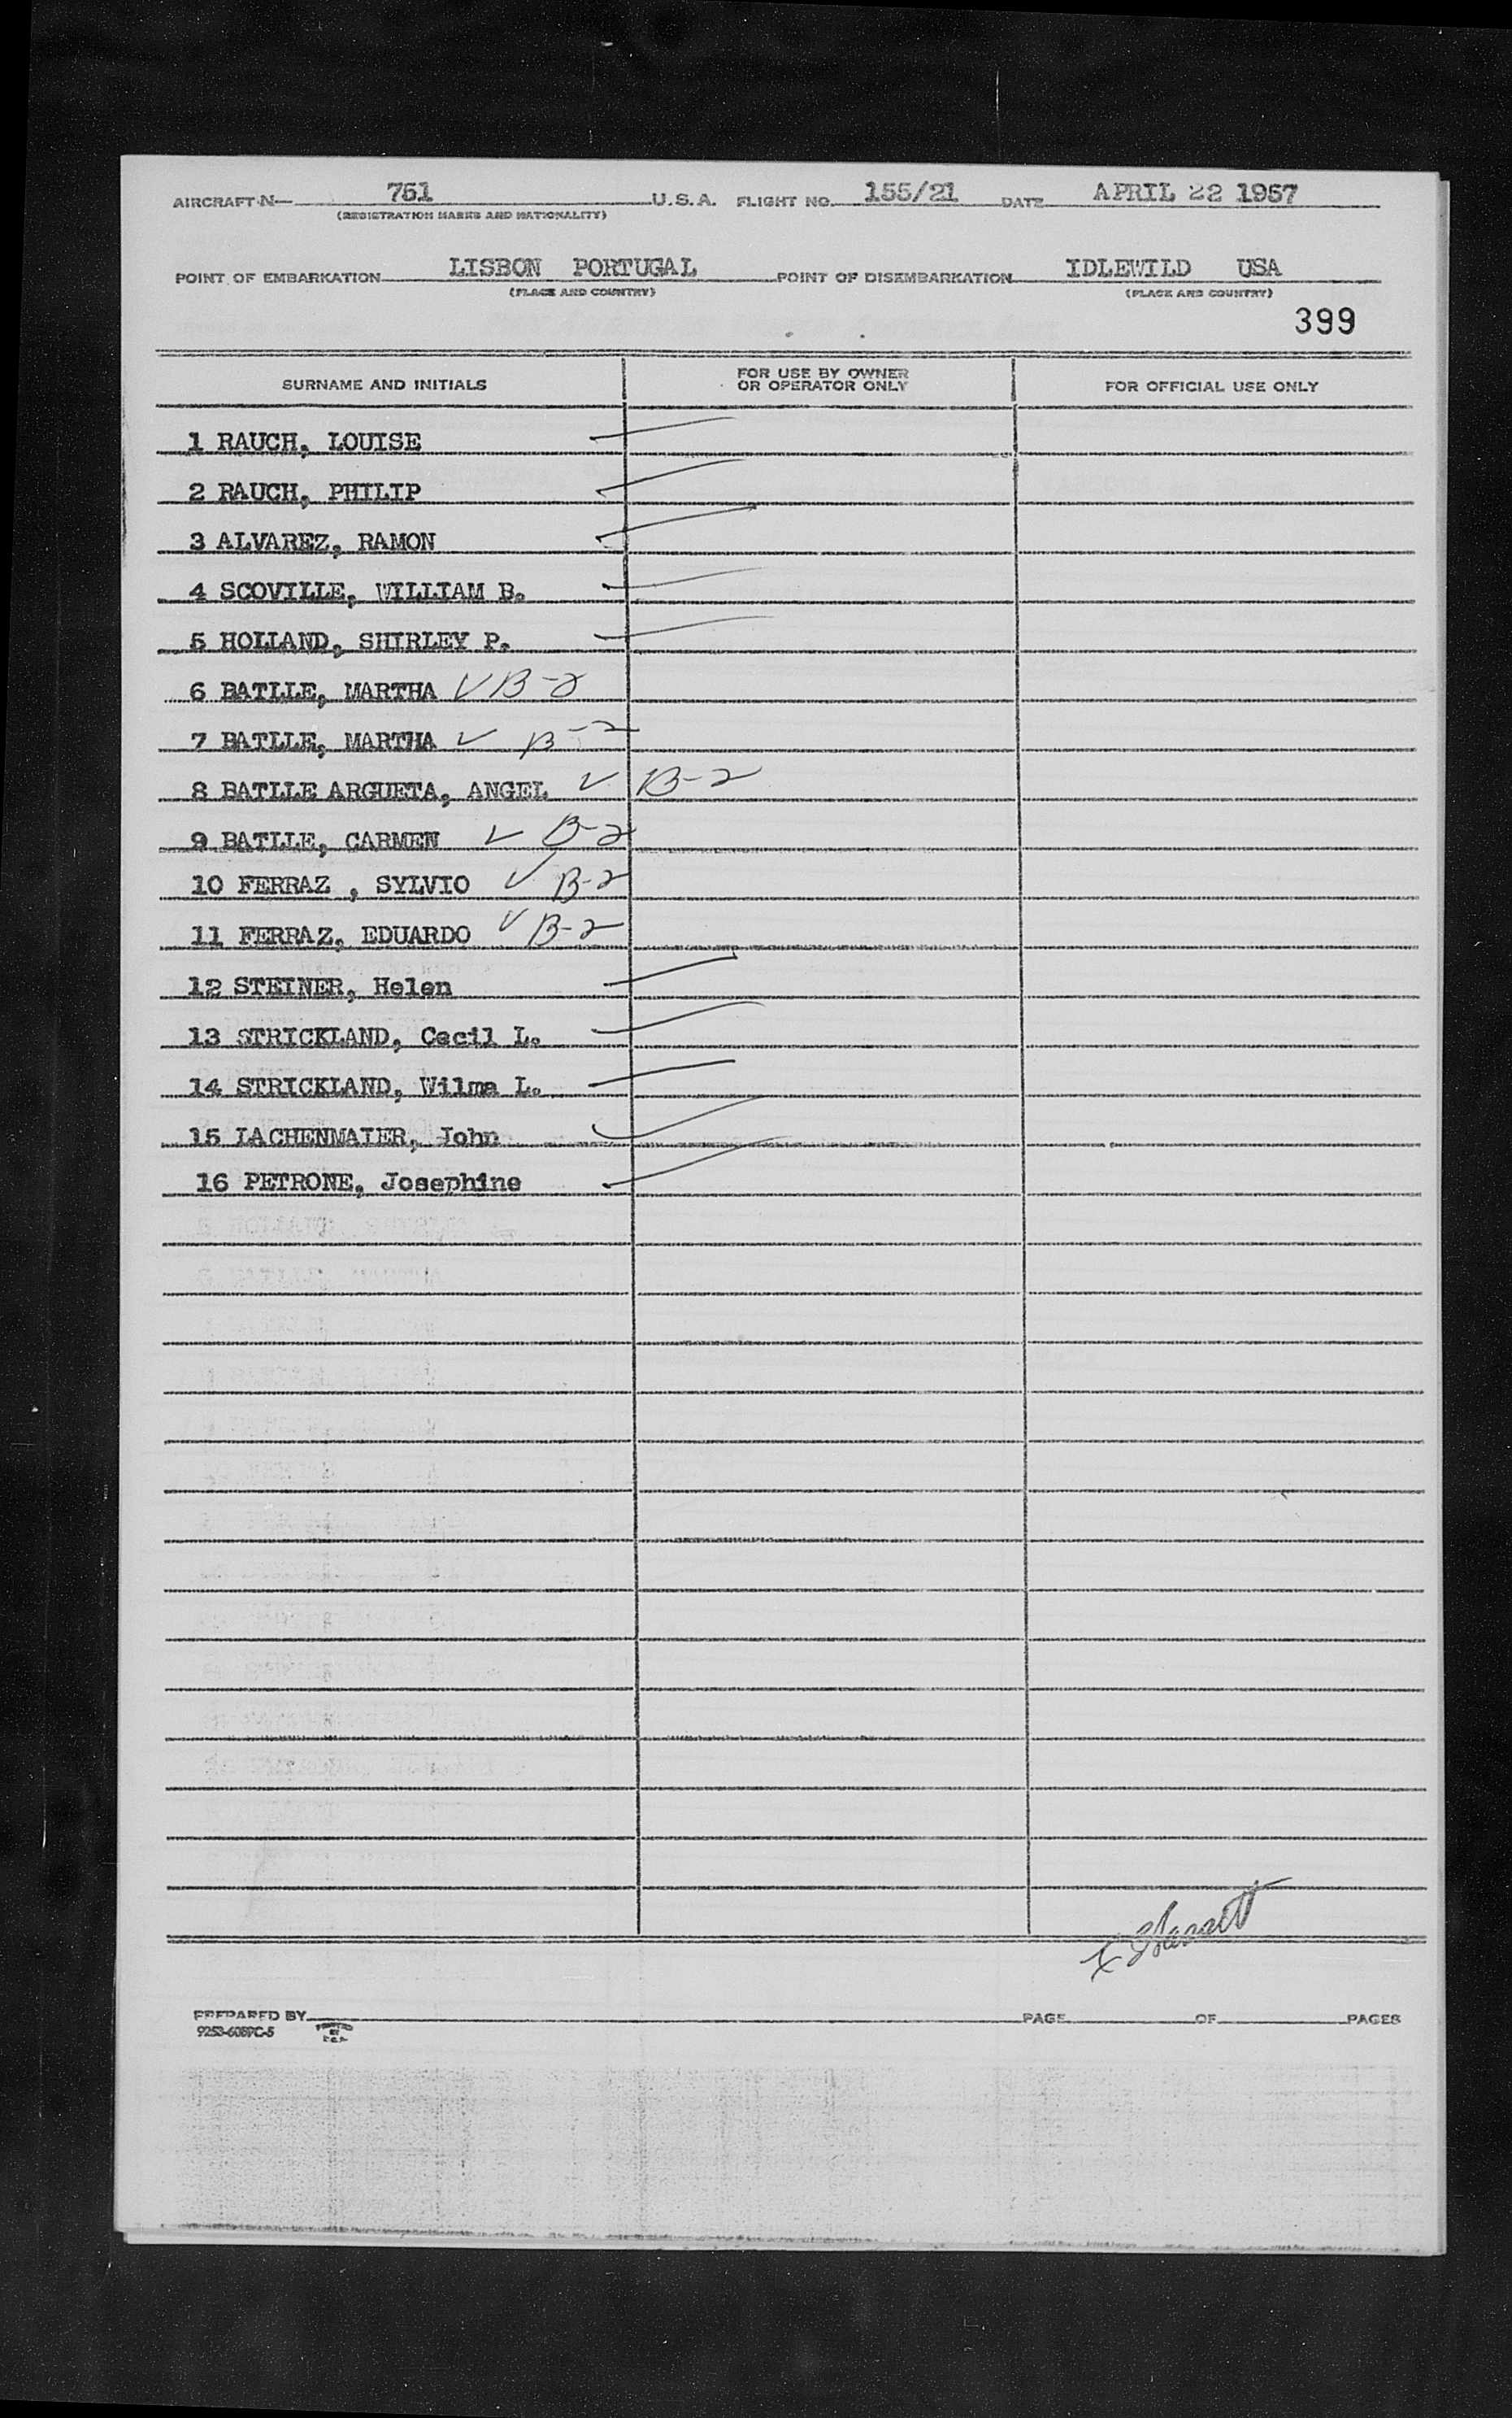 AIRCRAFT N— 751 U.S.A. FLIGHT NO. 155/21 DATE APRIL 22 1957
(REGISTRATION MARKS AND NATIONALITY)
POINT OF EMBARKATION LISBON PORTUGAL POINT OF DISEMBARKATION IDLEWILD USA
(PLACE AND COUNTRY) (PLACE AND COUNTRY)
399
SURNAME AND INITIALS FOR USE BY OWNER OR OPERATOR ONLY FOR OFFICIAL USE ONLY
1 RAUCH, LOUISE
2 RAUCH, PHILIP
3 ALVAREZ, RAMON
4 SCOVILLE, WILLIAM B.
5 HOLLAND, SHIRLEY P.
6 BATLLE, MARTHA ✓ B-2
7 BATLLE, MARTHA ✓ B-2
8 BATLLE ARGUETA, ANGEL ✓ B-2
9 BATLLE, CARMEN ✓ B-2
10 FERRAZ , SYLVIO ✓ B-2
11 FERRAZ, EDUARDO ✓ B-2
12 STEINER, Helen
13 STRICKLAND, Cecil L.
14 STRICKLAND, Wilma L.
15 LACHENMAIER, John
16 PETRONE, Josephine
PREPARED BY PAGE OF PAGES
9253-6089C-5